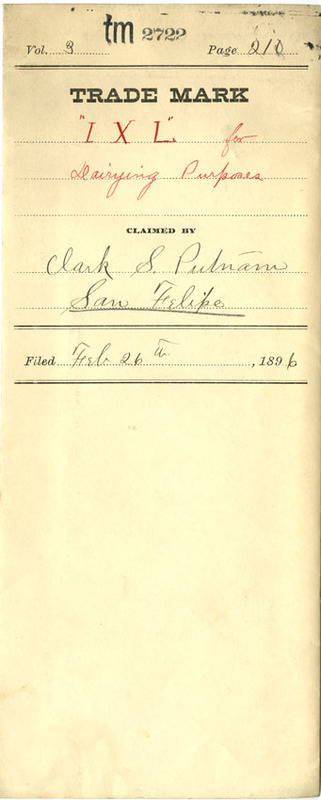 tm 2722
Vol. 3 Page 210
TRADE MARK
"I X L". for
Dairying Purposes
CLAIMED BY
Clark S. Putnam
San Felipe
Filed Feb 26th, 1896